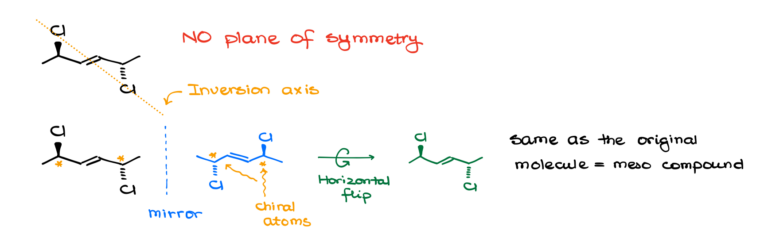 Cl
NO plane of symmetry
Cl
Inversion axis
Cl
*
*
Cl
mirror
Cl
*
*
Cl
chiral
atoms
Horizontal
flip
Cl
Cl
same as the original
molecule = meso compound